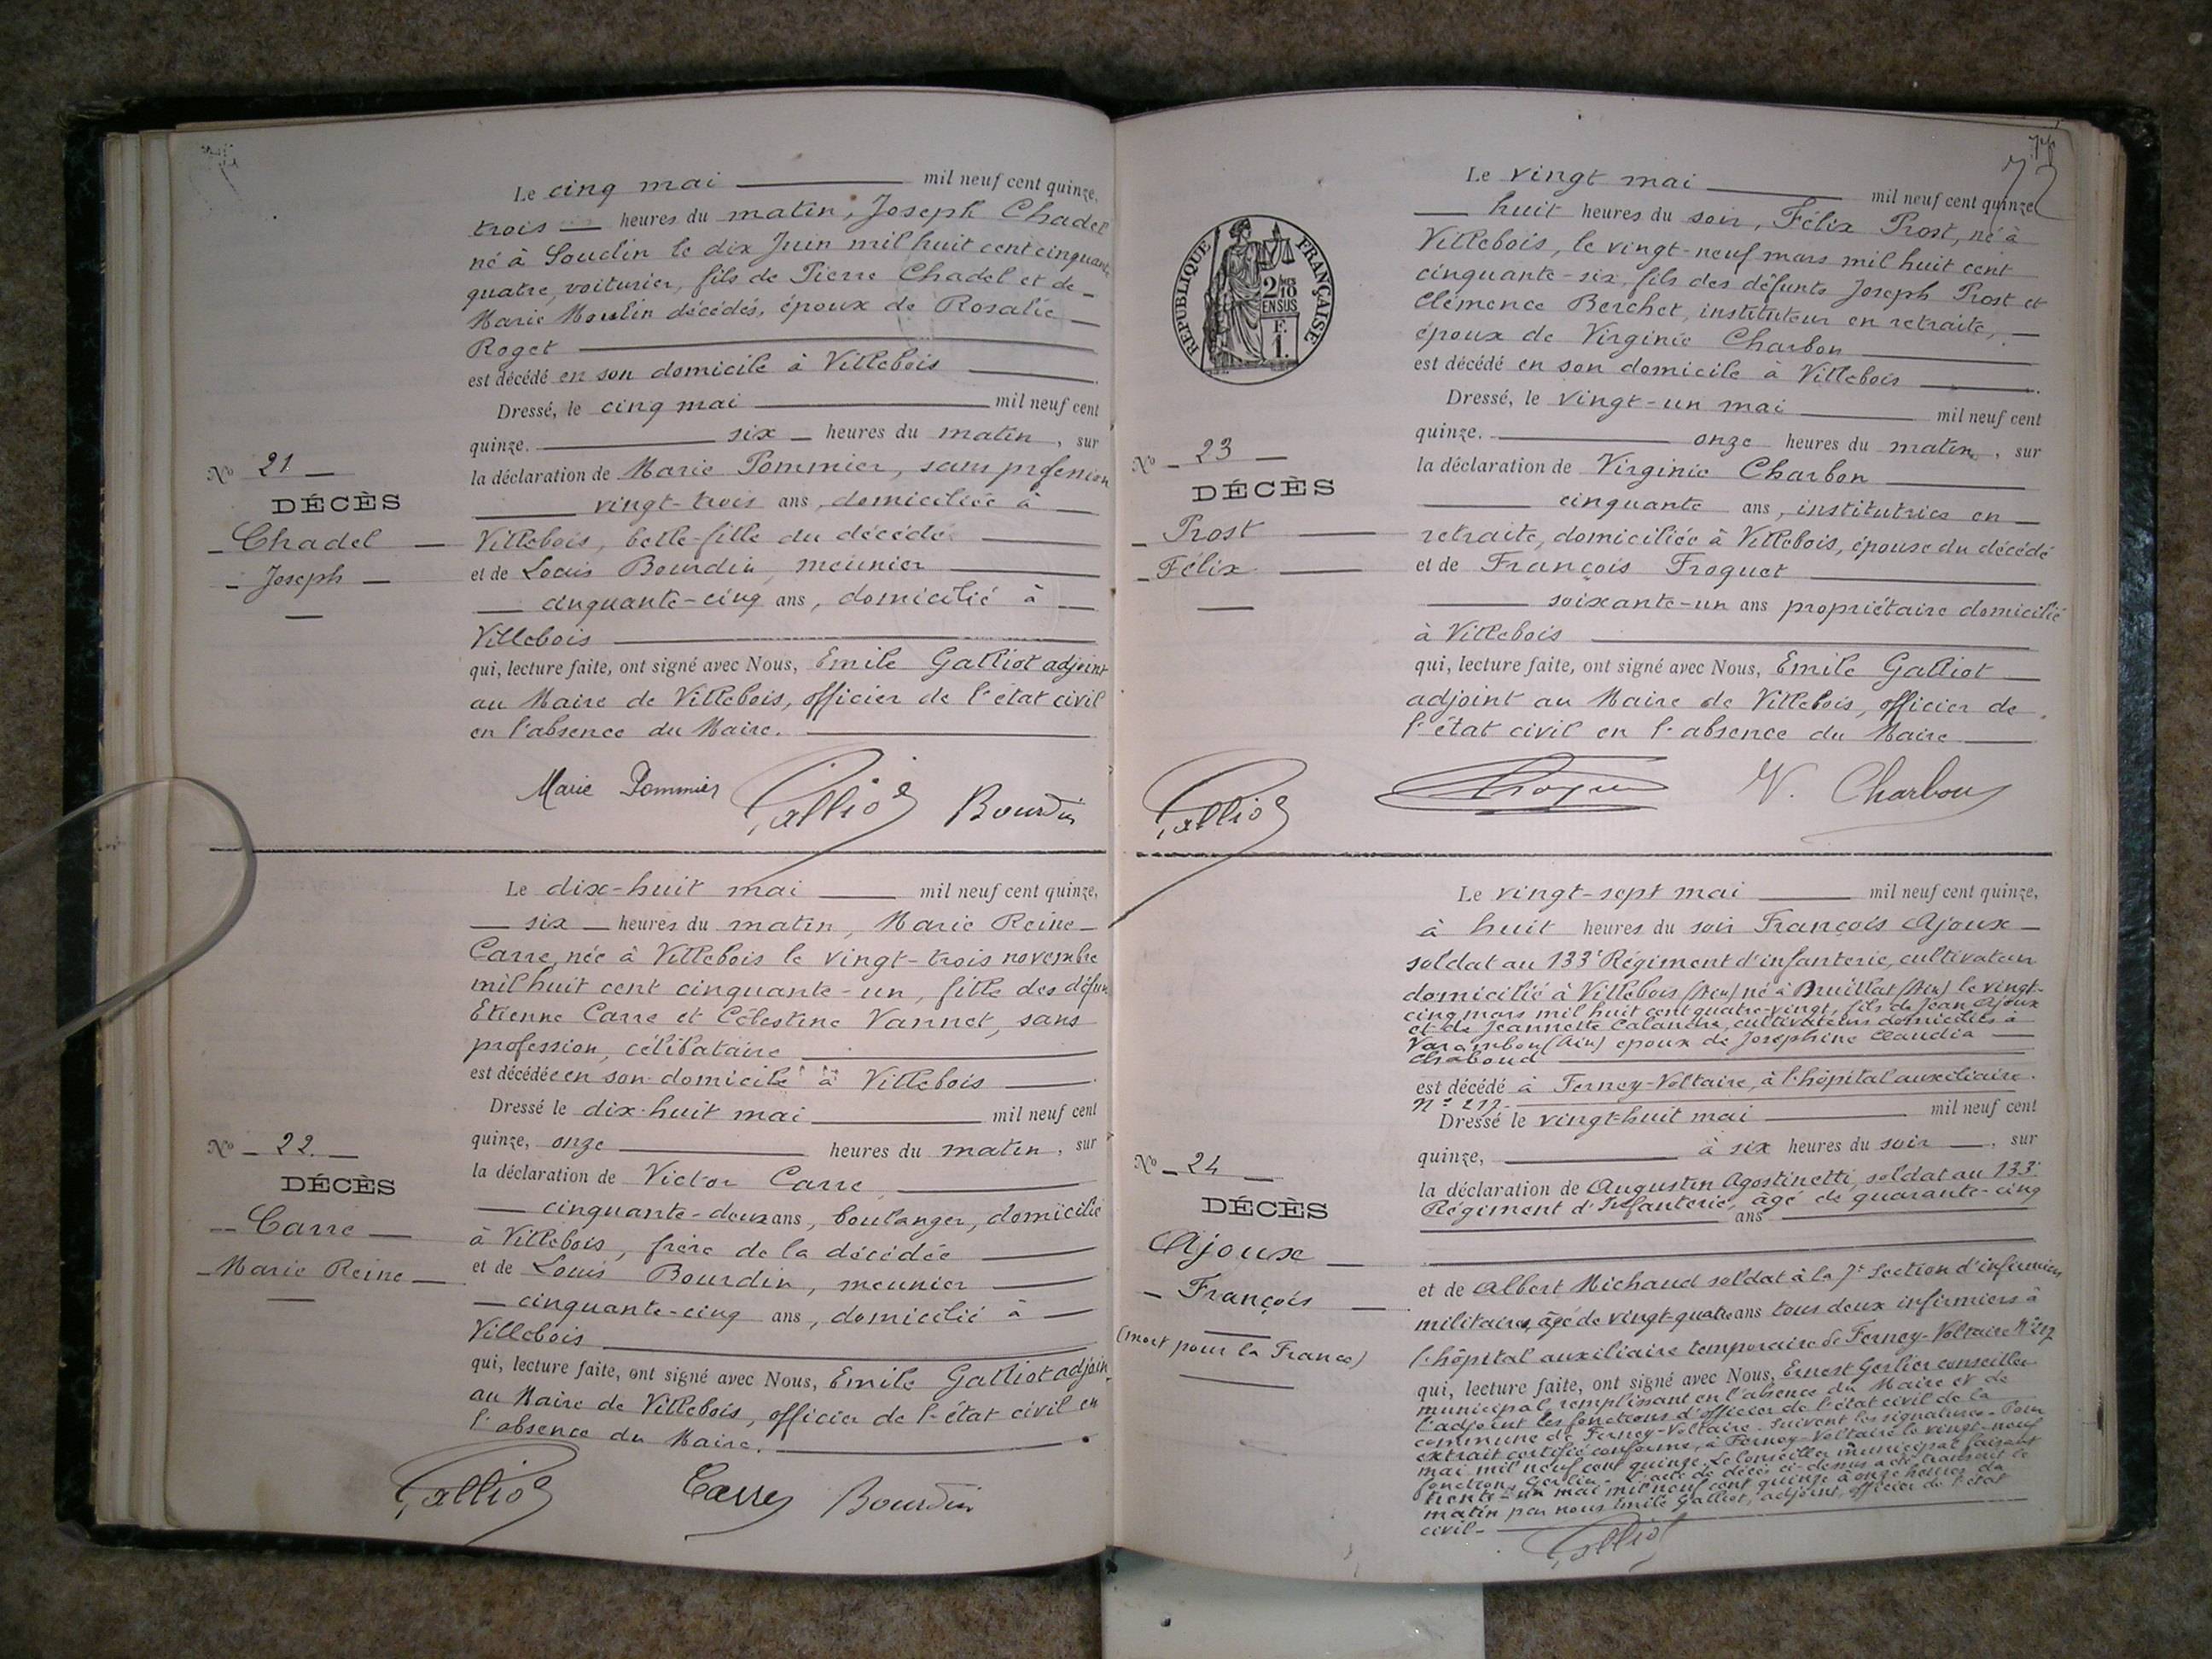 Le cinq mai mil neuf cent quinze,
trois heures du matin, Joseph Chadel
né à Soudin le dix Juin mil huit cent cinquante
quatre, voiturier, fils de Pierre Chadel et de
Marie Moulin décédés, époux de Rosalie
Roget
est décédé en son domicile à Villebois
Dressé, le cinq mai mil neuf cent
quinze. six heures du matin, sur
la déclaration de Marie Pommier, sans profession
vingt-trois ans, domiciliée à
Villebois, belle-fille du décédé
et de Louis Bourdin, meunier
cinquante-cinq ans, domicilié à
Villebois
qui, lecture faite, ont signé avec Nous, Emile Galliot adjoint
au Maire de Villebois, officier de l'état civil
en l'absence du Maire.
Marie Pommier Galliot Bourdin
No 21
DÉCÈS
Chadel
Joseph
Le dix-huit mai mil neuf cent quinze,
six heures du matin, Marie Reine
Carre, née à Villebois le vingt-trois novembre
mil huit cent cinquante-un, fille des défun
Etienne Carre et Célestine Vannet, sans
profession, célibataire
est décédée en son domicile à Villebois
Dressé le dix-huit mai mil neuf cent
quinze, onze heures du matin, sur
la déclaration de Victor Carre,
cinquante-deux ans, boulanger, domicilié
à Villebois, frère de la décédée
et de Louis Bourdin, meunier
cinquante-cinq ans, domicilié à
Villebois
qui, lecture faite, ont signé avec Nous, Emile Galliot adjoin
au Maire de Villebois, officier de l'état civil en
l'absence du Maire.
Galliot Carre Bourdin
No 22.
DÉCÈS
Carre
Marie Reine
RÉPUBLIQUE FRANÇAISE
2/10
EN SUS
F.
1.
Le vingt mai mil neuf cent quinze
huit heures du soir, Félix Prost, né à
Villebois, le vingt-neuf mars mil huit cent
cinquante-six, fils des défunts Joseph Prost et
Clémence Berchet, instituteur en retraite,
époux de Virginie Charbon
est décédé en son domicile à Villebois
Dressé, le vingt-un mai mil neuf cent
quinze. onze heures du matin, sur
la déclaration de Virginie Charbon
cinquante ans, institutrice en
retraite, domiciliée à Villebois, épouse du décédé
et de François Froquet
soixante-un ans propriétaire domicilié
à Villebois
qui, lecture faite, ont signé avec Nous, Emile Galliot
adjoint au Maire de Villebois, officier de
l'état civil en l'absence du Maire
Galliot V. Charbon
No 23
DÉCÈS
Prost
Félix
Le vingt-sept mai mil neuf cent quinze,
à huit heures du soir François Ajoux
soldat au 133e Régiment d'infanterie, cultivateur
domicilié à Villebois (Ain) né à Druillat (Ain) le vingt-
cinq mars mil huit cent quatre-vingt, fils de Jean Ajoux
et de Jeannette Calandre, cultivateurs domiciliés à
Varambon (Ain) époux de Joséphine Claudia
Chaboud
est décédé à Ferney-Voltaire, à l'hôpital auxiliaire.
No 217.
Dressé le vingt-huit mai mil neuf cent
quinze, à six heures du soir, sur
la déclaration de Augustin Agostinetti, soldat au 133e
Régiment d'Infanterie, âgé de quarante-cinq
ans
et de Albert Michaud soldat à la 7e Section d'infirmiers
militaires, âgé de vingt-quatre ans tous deux infirmiers à
l'hôpital auxiliaire temporaire de Ferney-Voltaire No 217
qui, lecture faite, ont signé avec Nous, Ernest Gerlier conseiller
municipal remplissant en l'absence du Maire et de
l'adjoint les fonctions d'officier de l'état civil de la
commune de Ferney-Voltaire. Suivent les signatures. Pour
extrait certifié conforme, à Ferney-Voltaire le vingt-neuf
mai mil neuf cent quinze. Le Conseiller municipal faisant
fonctions, Gerlier. L'acte de décès ci-dessus a été transcrit le
trente-un mai mil neuf cent quinze à onze heures du
matin par nous Emile Galliot, adjoint, officier de l'état
civil.
Galliot
No 24
DÉCÈS
Ajoux
François
(mort pour la France)